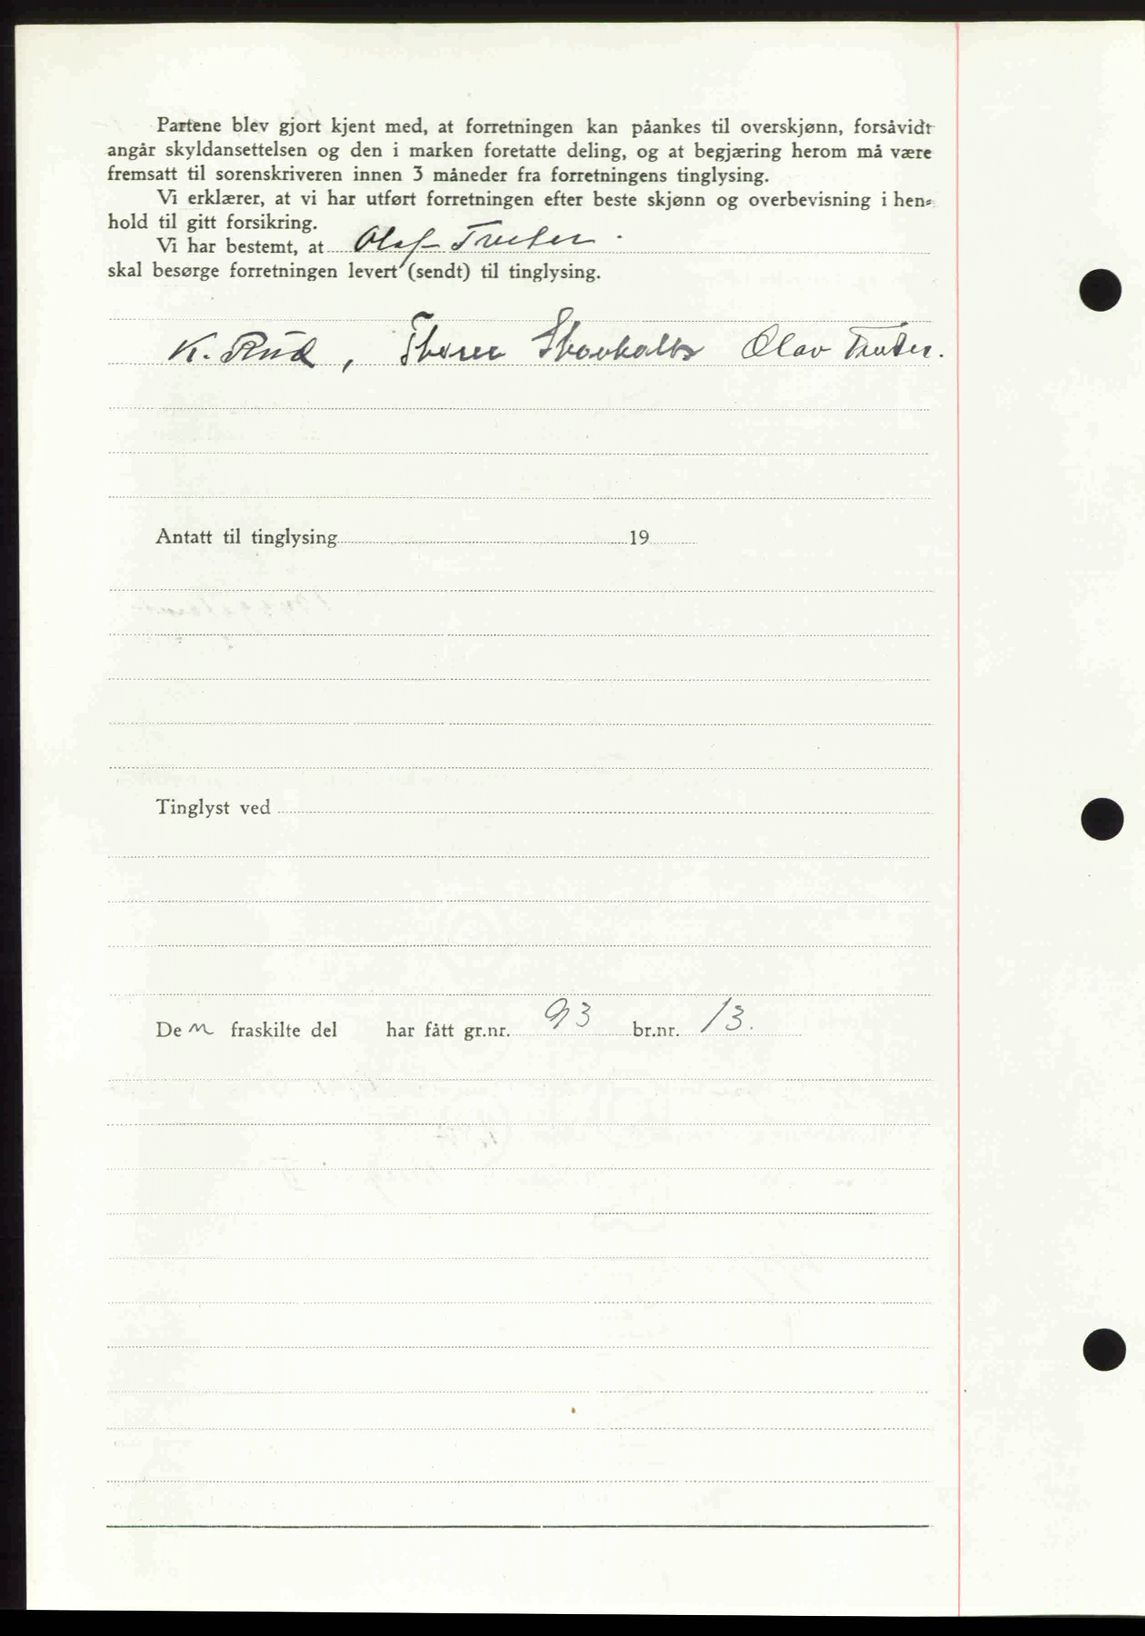 Partene blev gjort kjent med, at forretningen kan påankes til overskjønn, forsåvidt
angår skyldansettelsen og den i marken foretatte deling, og at begjæring herom må være
fremsatt til sorenskriveren innen 3 måneder fra forretningens tinglysing.
Vi erklærer, at vi har utført forretningen efter beste skjønn og overbevisning i hen-
hold til gitt forsikring.
Vi har bestemt, at Olaf Truter.
skal besørge forretningen levert (sendt) til tinglysing.
K. Rud, Thorer Skovholt Olav Truter.
Antatt til tinglysing 19
Tinglyst ved
De n fraskilte del har fått gr.nr. 93 br.nr. 13.